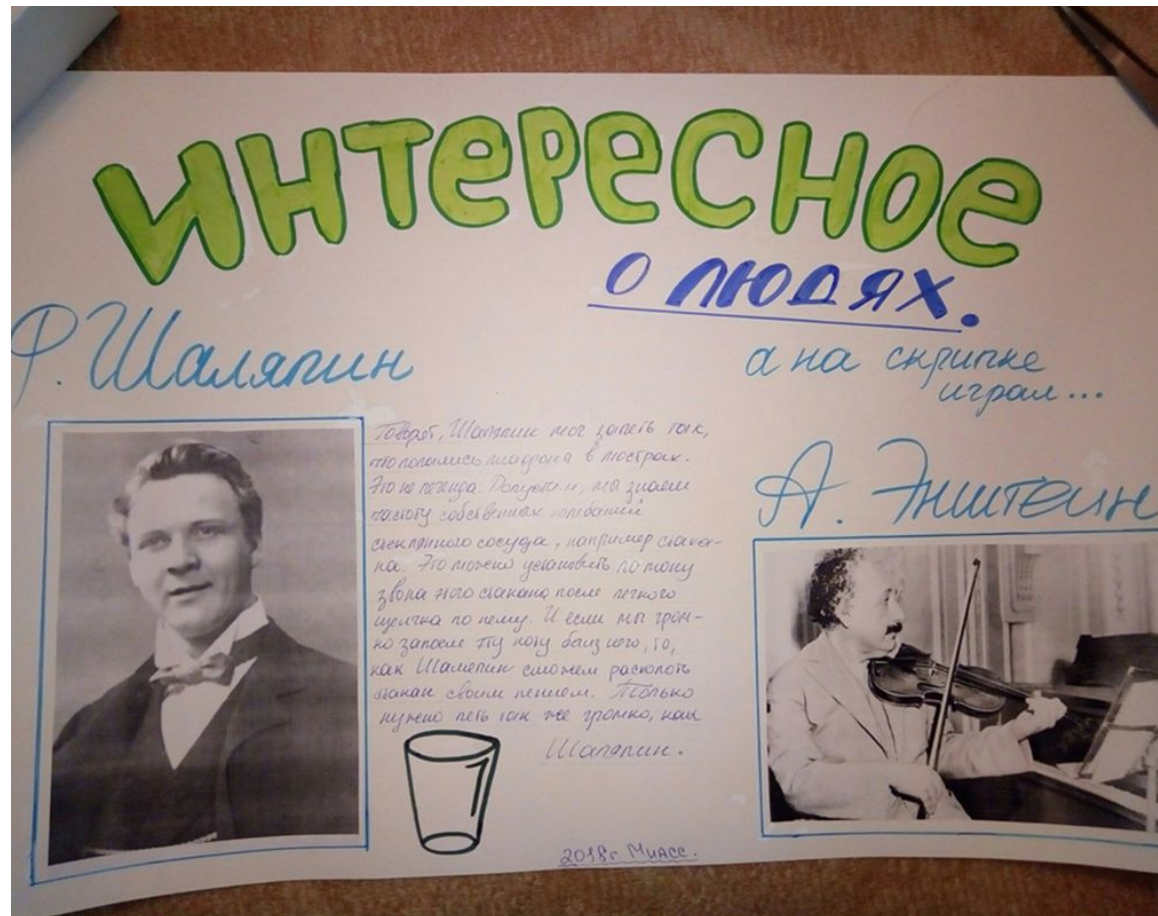 ИНТЕРЕСНОЕ
О ЛЮДЯХ.
Ф. Шаляпин
Говорят, Шаляпин мог запеть так,
что лопались плафоны в люстрах.
Это не легенда. Допустим, мы знаем
частоту собственных колебаний
стеклянного сосуда, например стака-
на. Это можно установить по тону
звона этого стакана после легкого
щелчка по нему. И если мы гром-
ко запоем эту ноту близ него, то,
как Шаляпин сможем расколоть
стакан своим пением. Только
нужно петь так же громко, как
Шаляпин.
а на скрипке
играл...
А. Энштейн
2018г. Миасс.